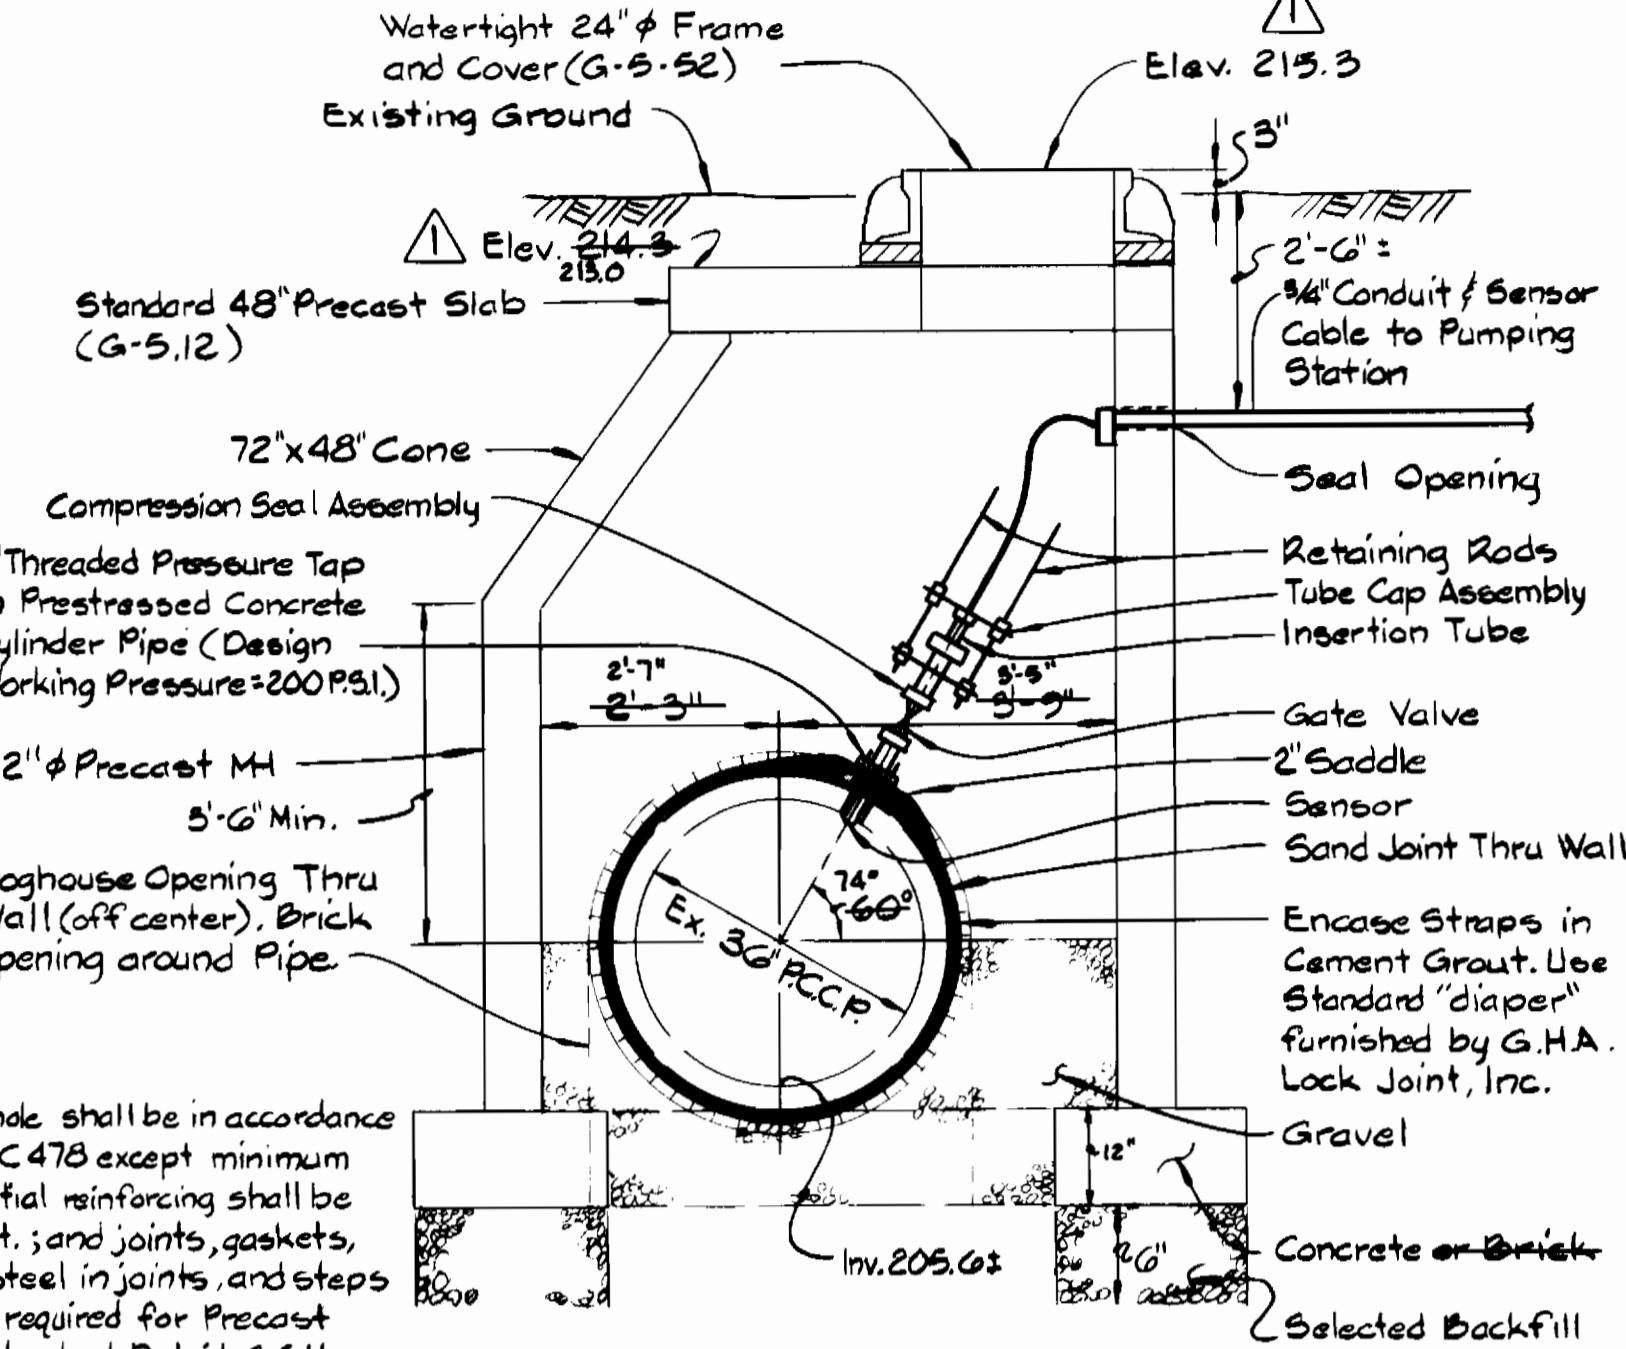 Watertight 24"φ Frame
and Cover (G-5-52)
Existing Ground
1
Elev. 215.3
3"
1 Elev. 214.3
213.0
Standard 48" Precast Slab
(G-5.12)
2'-6"±
3/4" Conduit & Sensor
Cable to Pumping
Station
72"x48" Cone
Compression Seal Assembly
Seal Opening
Threaded Pressure Tap
Prestressed Concrete
ylinder Pipe (Design
orking Pressure=200 P.S.I.)
Retaining Rods
Tube Cap Assembly
Insertion Tube
2'-7"
2'-3"
3'-5"
3'-9"
Gate Valve
2" Saddle
Sensor
Sand Joint Thru Wall
2"φ Precast MH
3'-6" Min.
oghouse Opening Thru
all (off center). Brick
pening around Pipe
74°
60°
Ex. 36" P.C.C.P.
Encase Straps in
Cement Grout. Use
Standard "diaper"
furnished by G.H.A.
Lock Joint, Inc.
Gravel
12"
6"
Concrete or Brick
Selected Backfill
Inv. 205.6±
hole shall be in accordance
C478 except minimum
tial reinforcing shall be
t.; and joints, gaskets,
steel in joints, and steps
required for Precast